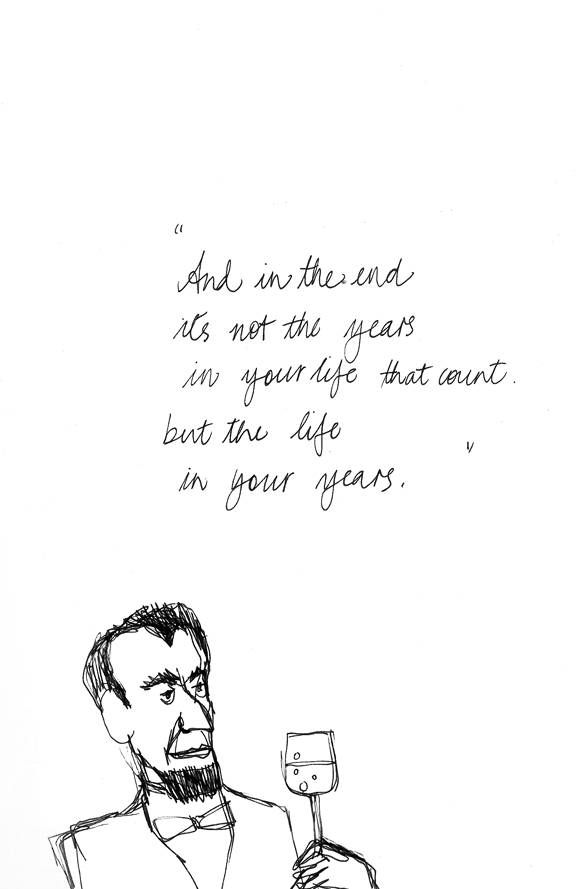 "And in the end
it's not the years
in your life that count.
but the life
in your years."